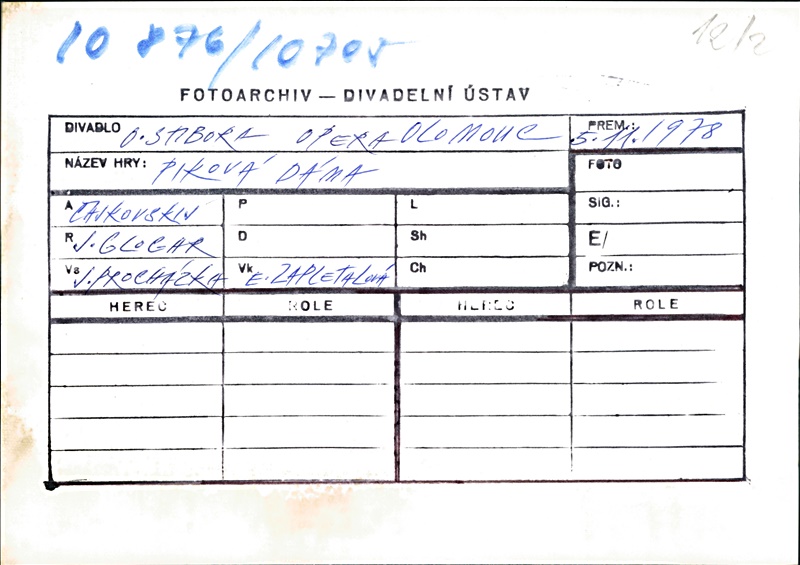 10 876/10705
12/2
FOTOARCHIV — DIVADELNÍ ÚSTAV
DIVADLO O. STIBORA OPERA OLOMOUC PREM.: 5.11.1978
NÁZEV HRY: PIKOVÁ DÁMA FOTO
A ČAJKOVSKIJ P L SIG.:
R J. GLOGAR D Sh E/
Vs J. PROCHÁZKA Vk E. ZAPLETALOVÁ Ch POZN.:
HEREC ROLE HEREC ROLE